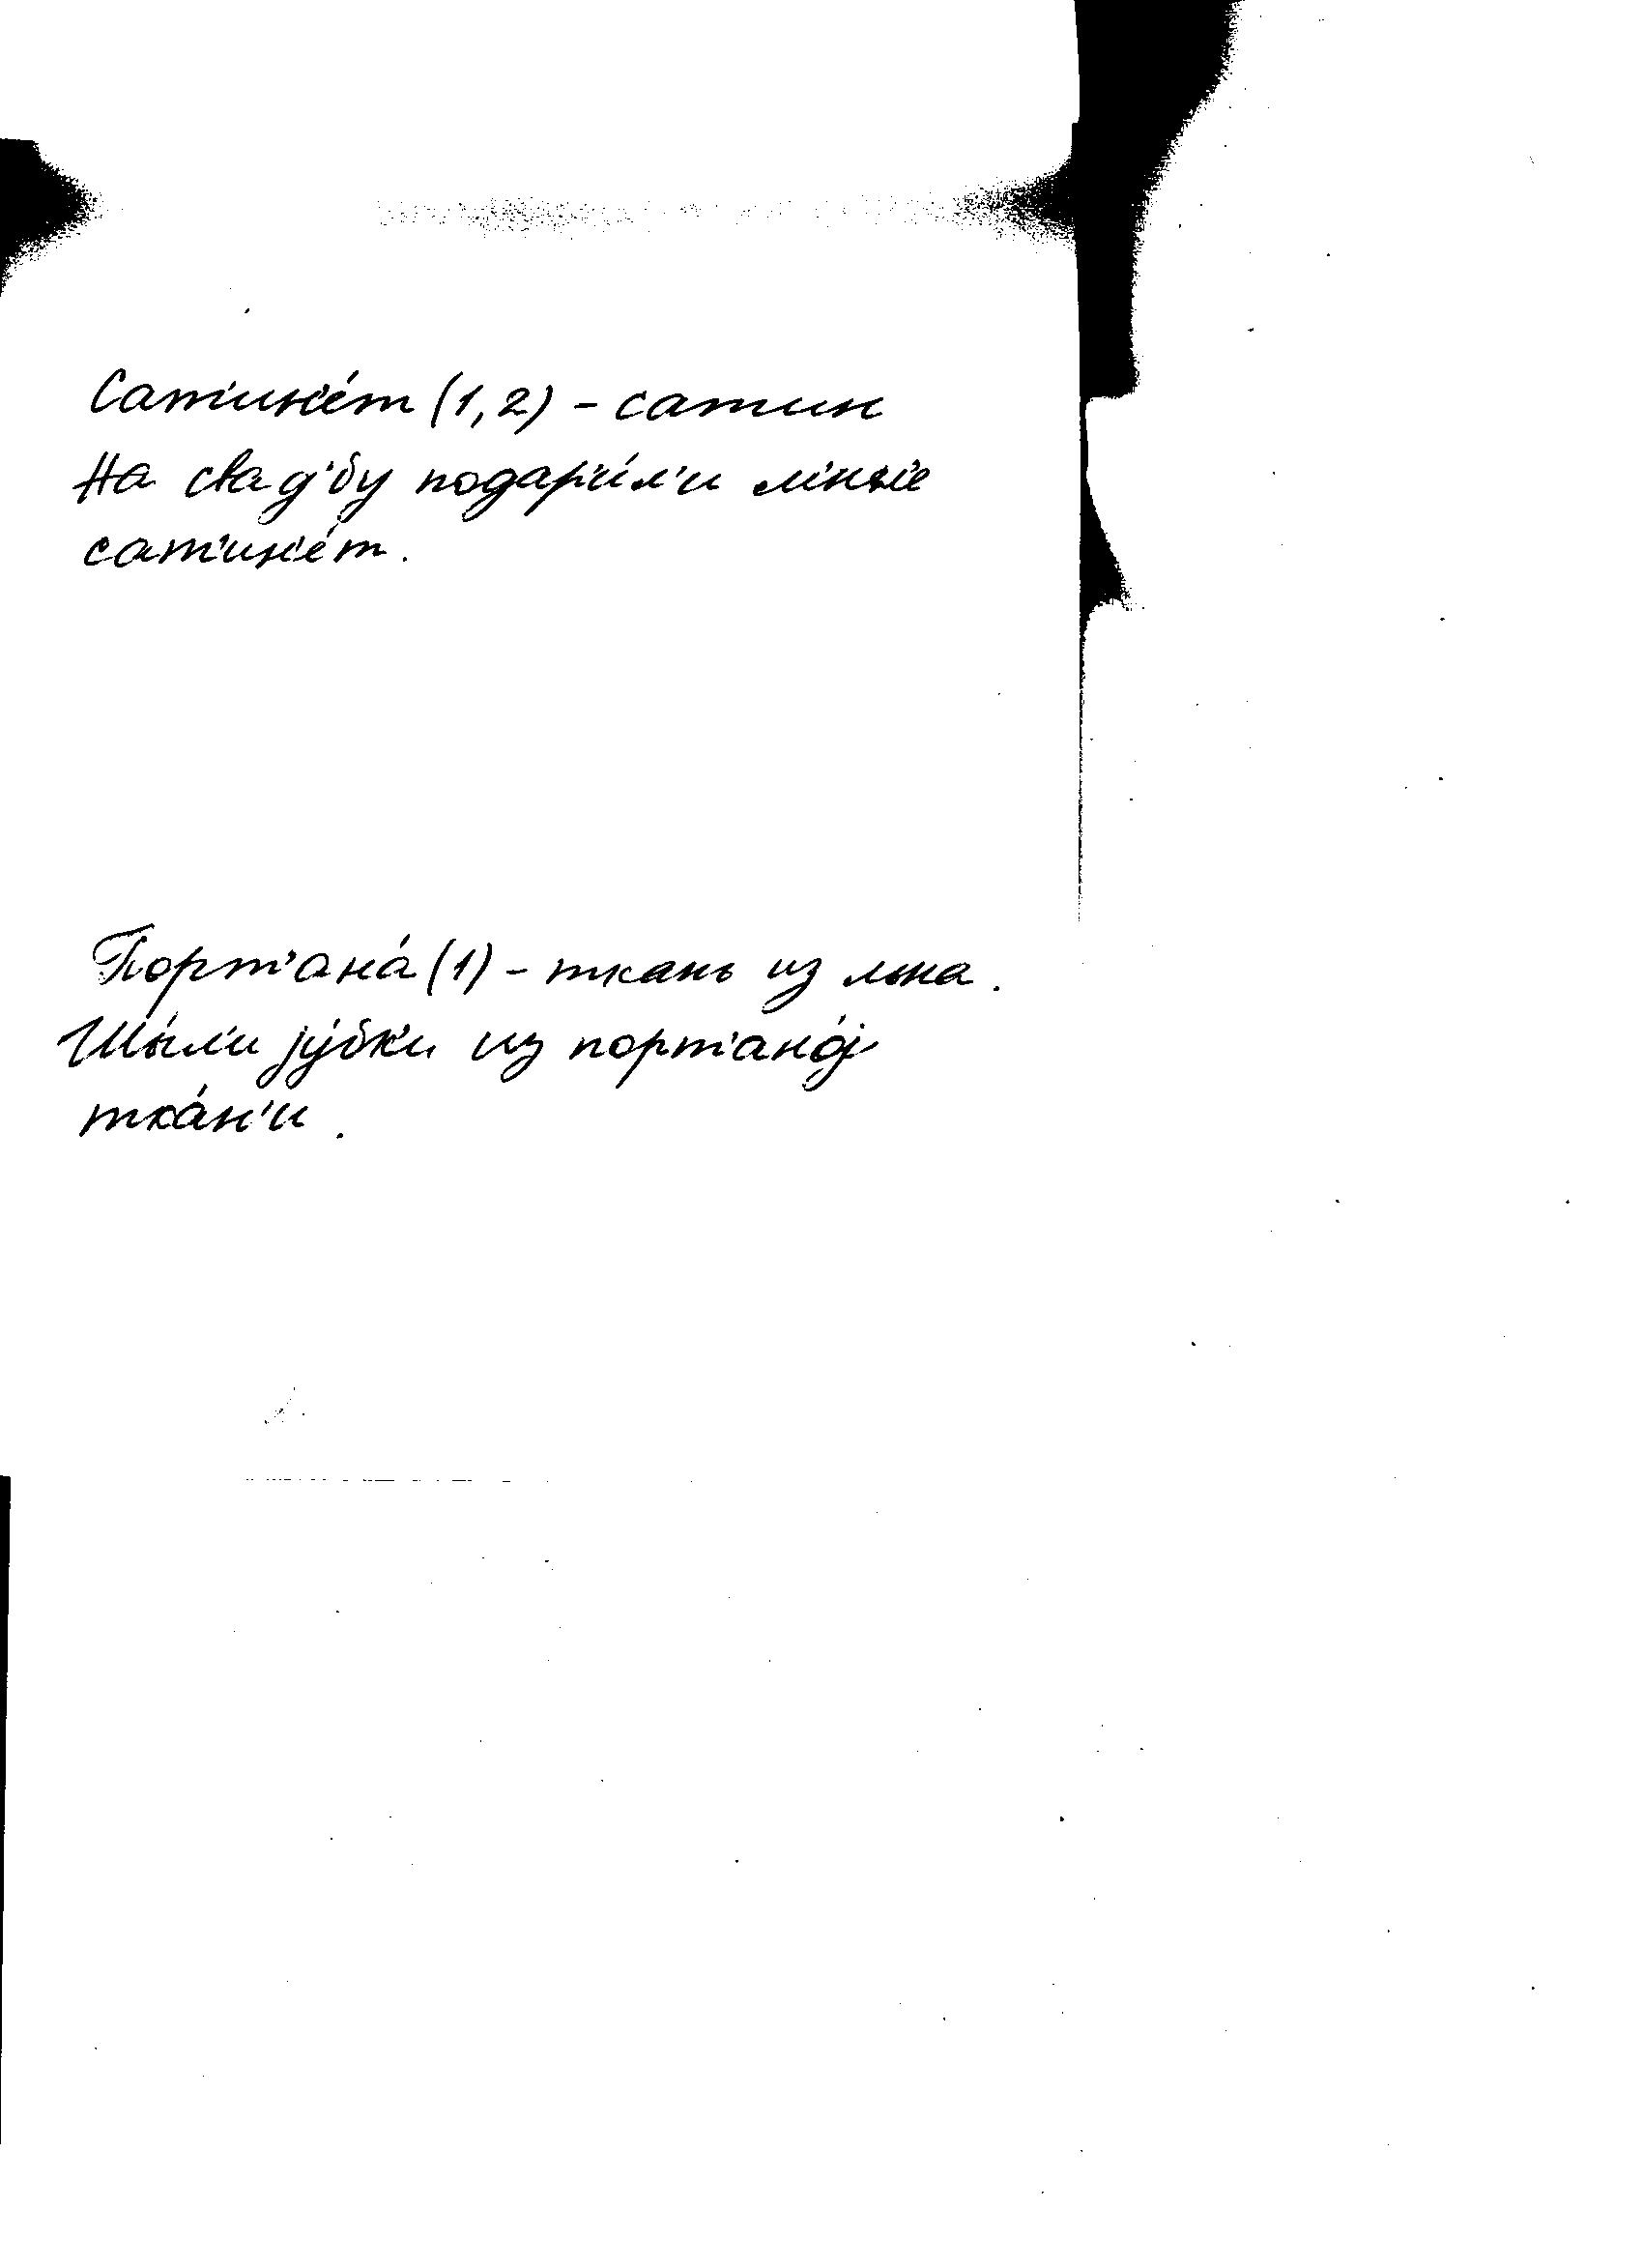 Сат'ин'éт (1,2) - сатин
На свад'бу подар'и́л'и мн'е
сат'ин'éт.
Порт'ана́ (1) - ткань из льна.
Шы́л'и jу́бк'и из порт'анój
тка́н'и.